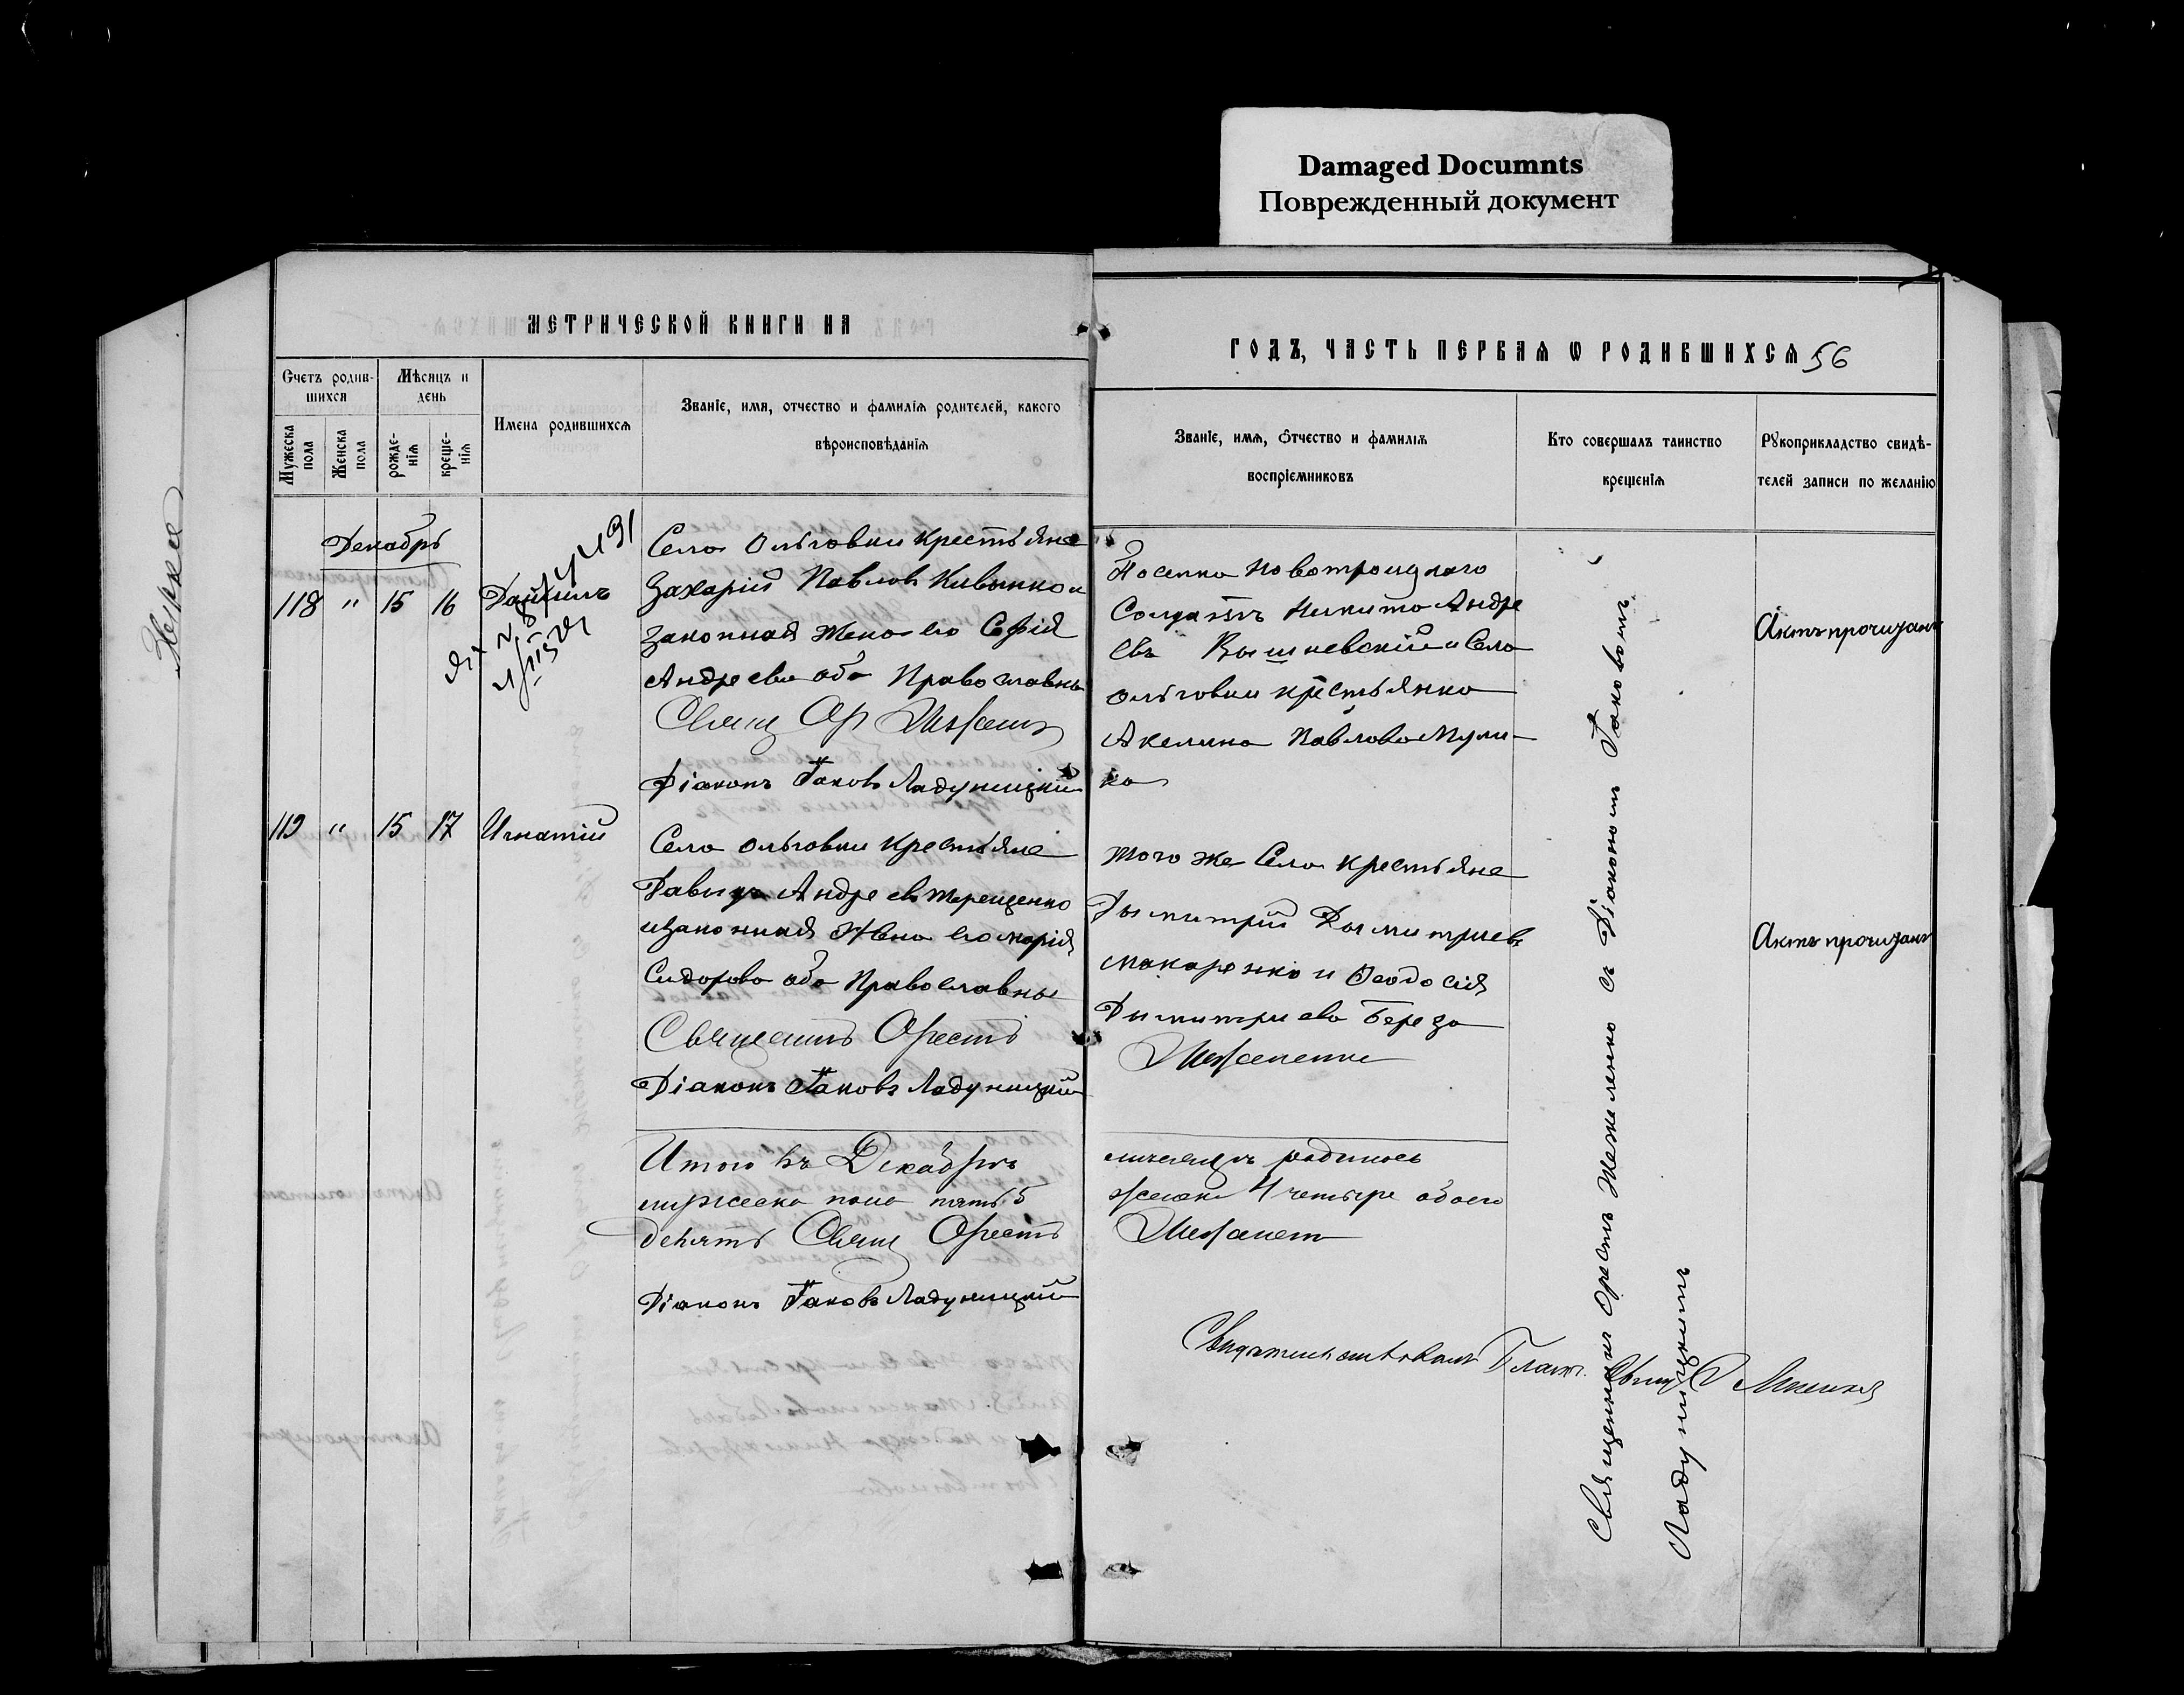 Damaged Documnts
Поврежденный документ
МЕТРИЧЕСКОЙ КНИГИ НА
ГОДЪ, ЧАСТЬ ПЕРВАѦ Ѡ РОДИВШИХСѦ 56
Счетъ родив-
шихся
Мѣсяцъ и
день
Мужеска
пола
Женска
пола
рожде-
нїѧ
креще-
нїѧ
Имена родившихсѧ
Званїе, имя, отчество и фамилїѧ родителей, какого
вѣроисповѣданїѧ
Званїе, имѧ, ѻтчество и фамилїѧ
воспрїемниковъ
Кто совершалъ таинство
крещенїѧ
Рꙋкоприкладство свидѣ-
телей записи по желанїю
Декабрь
118 " 15 16 Даніилъ
Села Ольговки крестьяне
Захарій Павловъ Кивенко и
законная жена его Софія
Андреева оба Православны
Свящ Ор
Діаконъ Іаковъ Ладуницкій
Поселка Новотроицкаго
Солдатъ Никита Андре
евъ Вышневскій и Села
Ольговки крестьянка
Акелина Павлова Мули-
ка
Актъ прочиданъ
119 " 15 17 Игнатій
Села Ольговки крестьяне
Давидъ Андреевъ Терещенко
и законная жена его Марія
Сидорова оба Православны
Священникъ Орестъ
Діаконъ Іаковъ Ладуницкій
того же Села крестьяне
Дымитрій Дымитріевъ
Макаренко и Феодосія
Дымитриева Береза
Актъ прочиданъ
Итого въ Декабрѣ
мужеска пола пять 5
девять Свящ Орестъ
Діаконъ Іаковъ Ладуницкій
мѣсяцѣ родилось
женска 4 четыре обоего
Священникъ Орестъ Шежеленко съ Діакономъ Іаковомъ
Ладуницкимъ